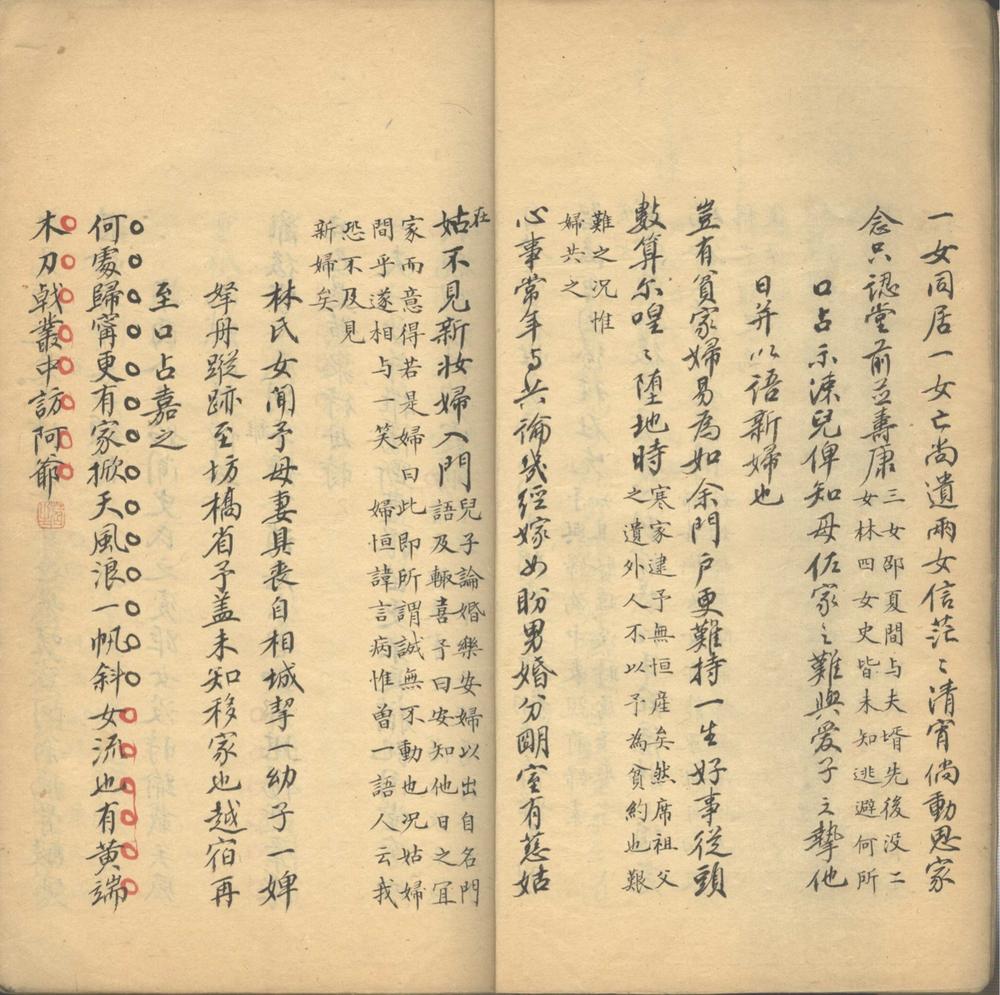 一女同居一女亡尚遺兩女信茫〻清宵倘動思家
念只認堂前並壽康三女邵夏間与夫壻先後没二
女林四女史皆未知逃避何所
口占示涑兒俾知母佐家之難與愛子之摯他
日并以語新婦也
豈有貧家婦易為如余門戸更難持一生好事從頭
數算尔喤〻堕地時寒家逮予無恒産矣然席祖父
之遺外人不以予為貧約也艱
難之况惟
婦共之
心事常年与共論幾經嫁女盼男婚分明室有慈姑
在
姑不見新妝婦入門兒子論婚樂安婦以出自名門
語及輙喜予曰安知他日之宜
家而意得若是婦曰此即所謂誠無不動也况姑婦
間乎遂相与一笑婦恒諱言病惟曾一語人云我
恐不及見
新婦矣
林氏女聞予母妻具喪自相城挈一幼子一婢
孥舟蹤跡至坊橋省予盖未知移家也越宿再
至口占嘉之
何處歸寧更有家掀天風浪一帆斜女流也有黄端
木刀戟叢中訪阿爺